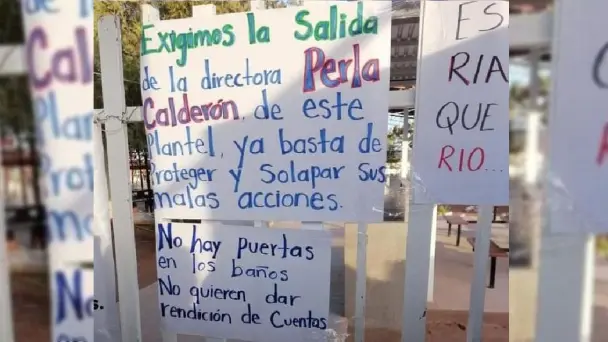 Exigimos la Salida
de la directora Perla
Calderón, de este
Plantel, ya basta de
Proteger y Solapar Sus
malas acciones.
No hay puertas
en los baños
No quieren dar
rendición de Cuentas
ES
RIA
QUE
RIO...